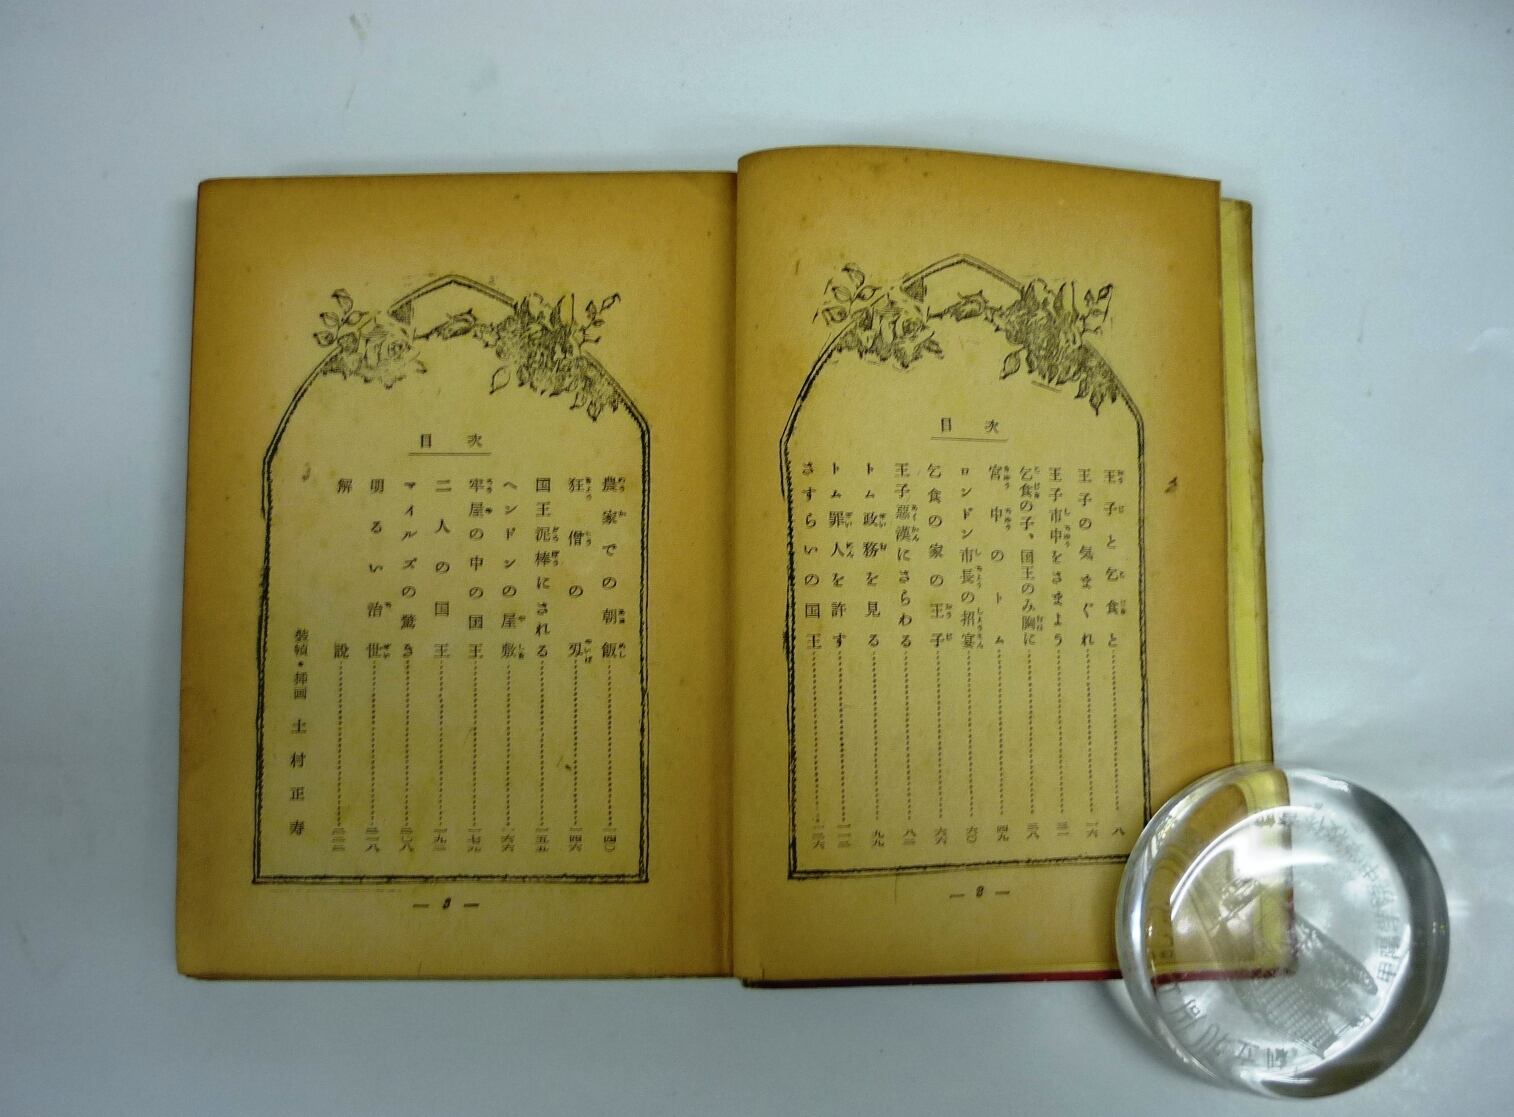 目次
王子と乞食と……八
王子の気まぐれ……一六
王子市中をさまよう
乞食の子、国王のみ胸に……三八
宮中のトム……四九
ロンドン市長の招宴……六〇
乞食の家の王子……六六
王子悪漢にさらわる……八二
トム政務を見る……九九
トム罪人を許す……一一三
さすらいの国王……一二六
— 2 —
目次
農家での朝飯……一四〇
狂僧の刃……一四六
国王泥棒にされる……一五五
ヘンドンの屋敷……一六六
牢屋の中の国王……一七九
二人の国王……一九二
マイルズの驚き……二〇八
明るい治世……二一八
解説……二二二
装幀・挿画 土村正寿
— 3 —